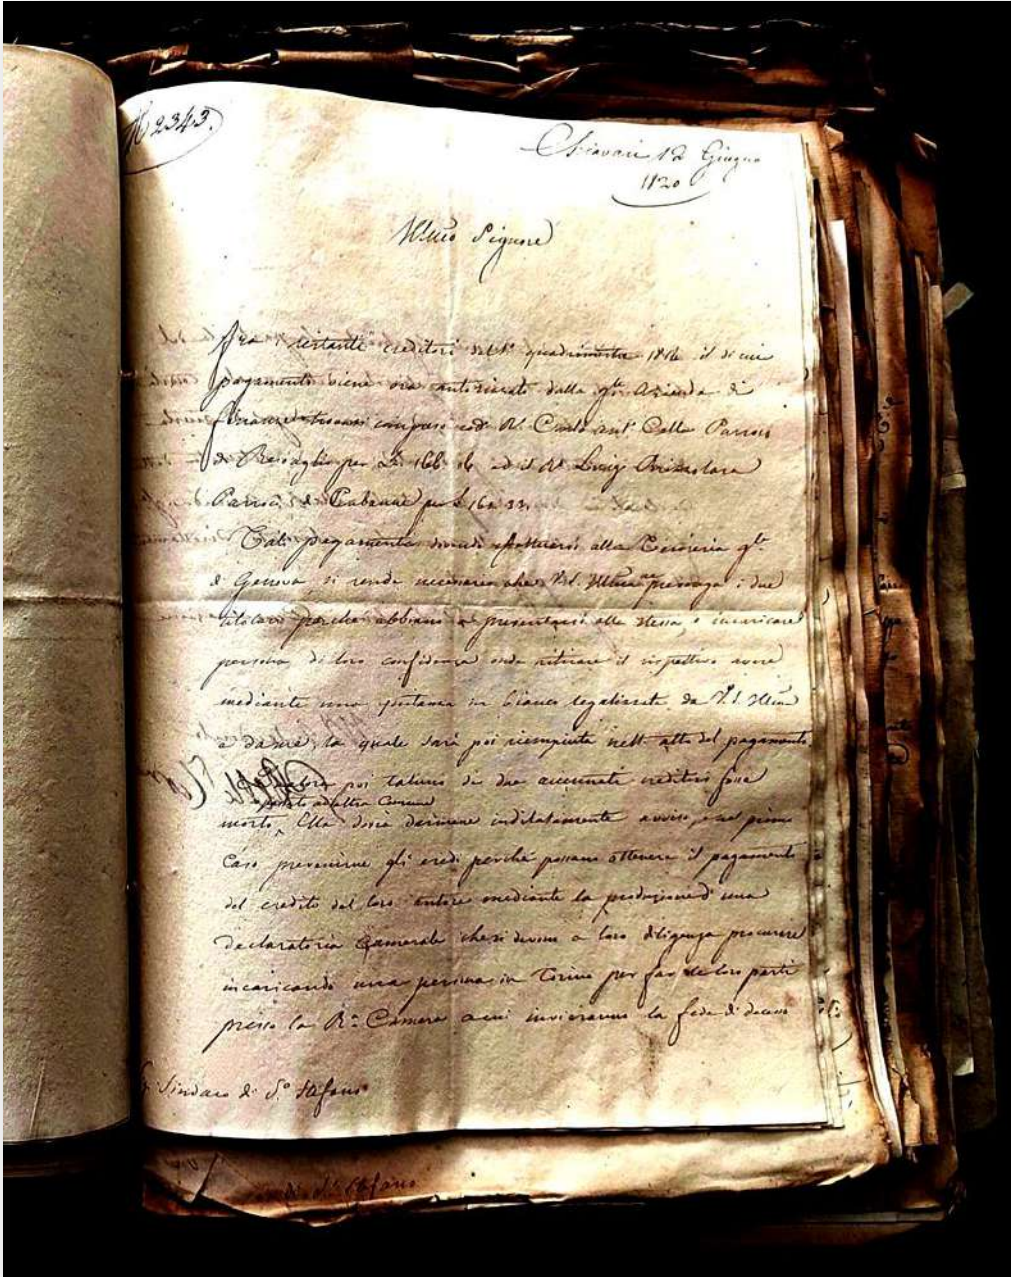 N 2343.
Chiavari 12 Giugno
1820
Ill.mo Signore
Fra i restanti creditori del 1° quadrimestre 1816 il di cui
pagamento viene ora autorizzato dalla g.le Azienda di
Finanze trovansi compresi il R. Carlo Ant° Cella Parroco
di per L. 166. 16 ed il R. Luigi
Parroco di Cabanne per L. 162. 33.
Tali pagamenti dovendo effettuarsi alla Tesoreria g.le
di Genova, si rende necessario che V.S. Ill.ma prevenga i due
perchè abbiano a presentarsi alla stessa, o incaricare
persona di loro confidenza onde ritirare il rispettivo avere
mediante una quitanza in bianco legalizzata da V.S. Ill.ma
e da me, la quale sarà poi riempiuta nell'atto del pagamento.
poi taluno di due accennati creditori fosse
ad altra Comune
morto, Ella dovrà darmene indilatamente avviso, e nel primo
caso prevenirne gli eredi perchè possano ottenere il pagamento
del credito del loro autore mediante la produzione d'una
declaratoria Camerale che si devono a loro diligenza procurare
incaricando una persona in Torino per far le loro parti
presso la R.a Camera a cui invieranno la fede di decesso
Sindaco di S.o Stefano
Stefano